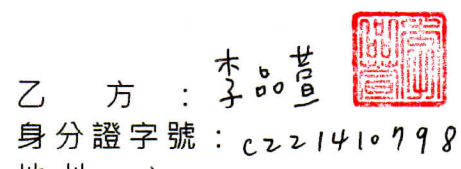 乙方:李品萱
身分證字號:C221410798